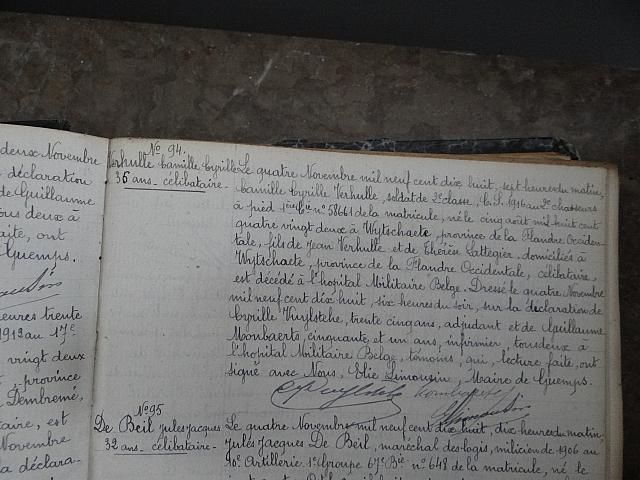 deux Novembre
déclaration
de Guillaume
tous deux à
faite, ont
Guemps.
heures trente
1912 au 17e
vingt deux
province
Dembremé,
taire, est
Novembre
la déclara-
No 94.
Verhulle Camille Cyrille
36 ans - célibataire -
Le quatre Novembre mil neuf cent dix huit, sept heures du matin,
Camille Cyrille Verhulle, soldat de 2e classe, C.S. 1916 au 2e chasseurs
à pied 1ière Cie n° 58661 de la matricule, né le cinq août mil huit cent
quatre vingt deux à Wytschaete, province de la Flandre Occiden-
tale, fils de Jean Verhulle et de Thérèse Cattegier, domiciliés à
Wytschaete, province de la Flandre Occidentale, célibataire,
est décédé à l'hopital Militaire Belge. Dressé le quatre Novembre
mil neuf cent dix huit, six heures du soir, sur la déclaration de
Cyrille Vuylsteke, trente cinq ans, adjudant et de Guillaume
Moonbaerts, cinquante et un ans, infirmier, tous deux à
l'hopital Militaire Belge, témoins, qui, lecture faite, ont
signé avec Nous, Elie Limousin, Maire de Guemps.
No 95
De Beil Jules Jacques
32 ans - célibataire -
Le quatre Novembre mil neuf cent dix huit, dix heures du matin,
Jules Jacques De Beil, maréchal des logis, milicien de 1906 au
10e Artillerie 1e Groupe 67e Bie n° 648 de la matricule, né le